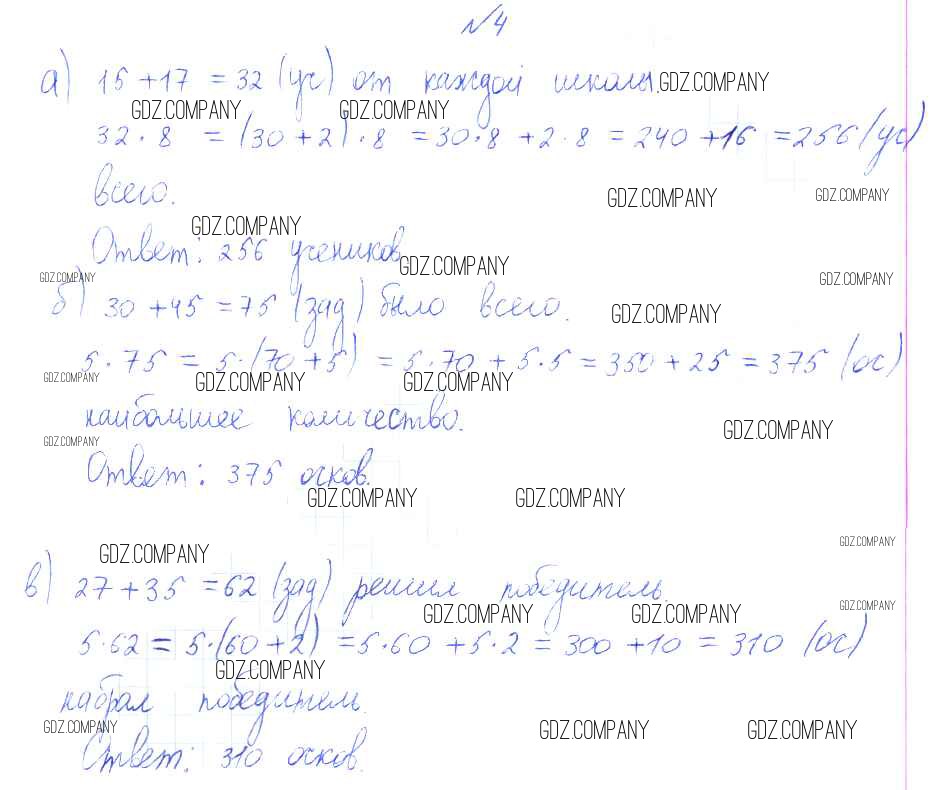 №4
а) 15 + 17 = 32 (уч) от каждой школы. GDZ.COMPANY
GDZ.COMPANY GDZ.COMPANY
32 · 8 = (30 + 2) · 8 = 30 · 8 + 2 · 8 = 240 + 16 = 256 (уч)
всего. GDZ.COMPANY GDZ.COMPANY
GDZ.COMPANY
Ответ: 256 учеников GDZ.COMPANY
GDZ.COMPANY GDZ.COMPANY
б) 30 + 45 = 75 (зад) было всего. GDZ.COMPANY
5 · 75 = 5 · (70 + 5) = 5 · 70 + 5 · 5 = 350 + 25 = 375 (ос)
GDZ.COMPANY GDZ.COMPANY GDZ.COMPANY
наибольшее количество. GDZ.COMPANY
GDZ.COMPANY
Ответ: 375 очков.
GDZ.COMPANY GDZ.COMPANY
GDZ.COMPANY GDZ.COMPANY
в) 27 + 35 = 62 (зад) решил победитель.
GDZ.COMPANY GDZ.COMPANY GDZ.COMPANY
5 · 62 = 5 · (60 + 2) = 5 · 60 + 5 · 2 = 300 + 10 = 310 (ос)
GDZ.COMPANY
набрал победитель.
GDZ.COMPANY GDZ.COMPANY GDZ.COMPANY
Ответ: 310 очков.